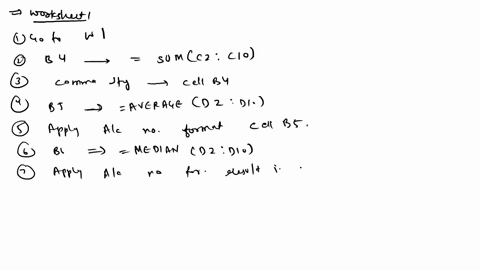 ⇒ Worksheet 1
① Go to W1
② B4 → = SUM(C2:C10)
③ comma sty → cell B4
④ B5 → =AVERAGE(D2:D10)
⑤ Apply A/c no. format cell B5.
⑥ B6 ⇒ =MEDIAN(D2:D10)
⑦ Apply A/c no for. result i. .